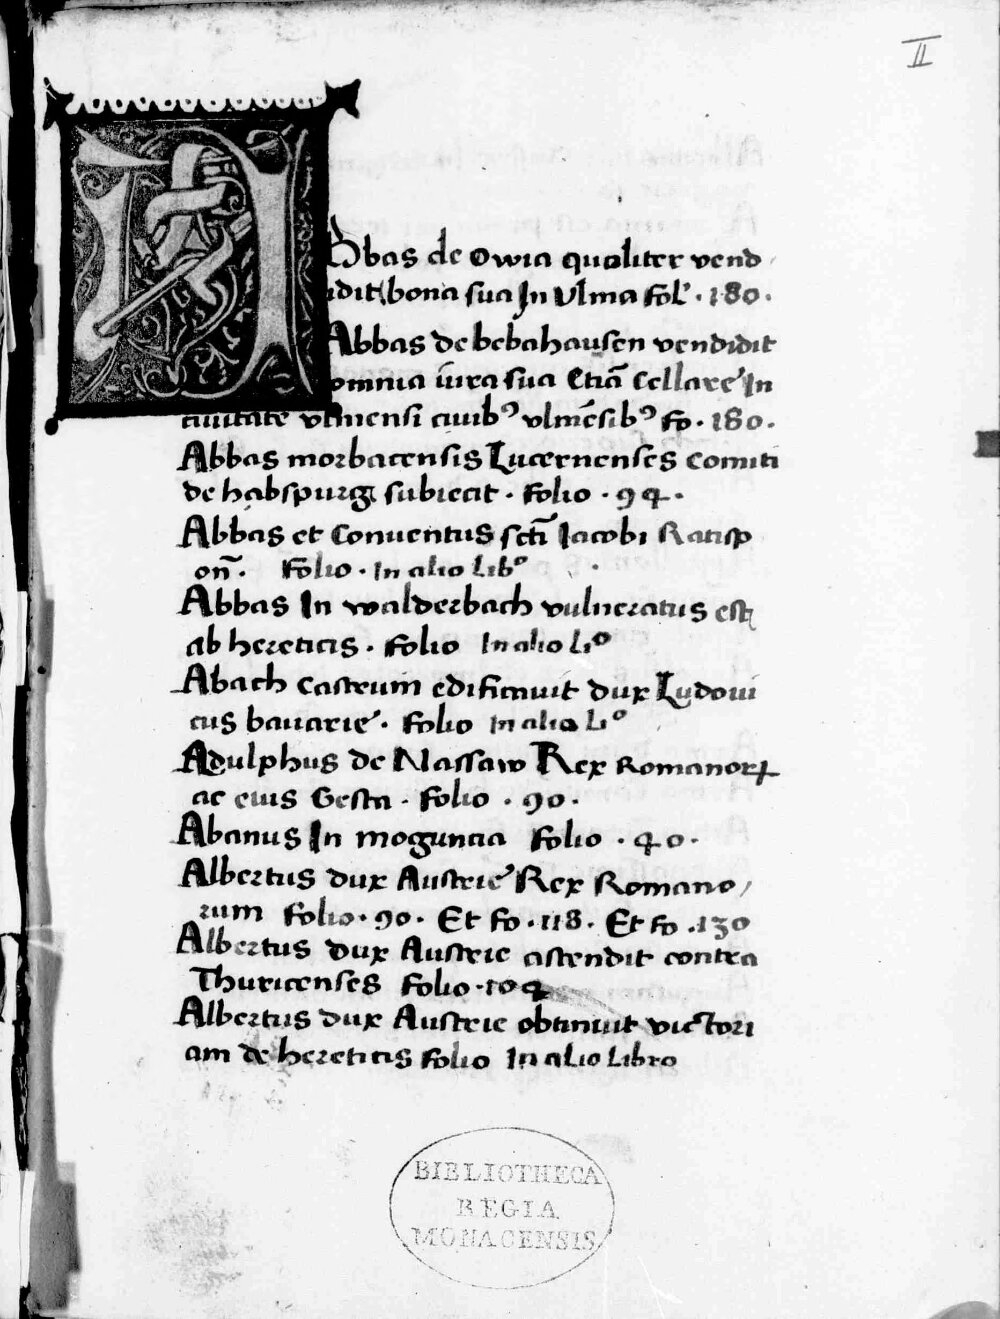 II
Abbas de Owia qualiter vend
idit bona sua In Ulma fol. 180.
Abbas de bebahausen vendidit
omnia iura sua Etiā Cellare In
ciuitate vlmensi ciuibꝰ vlmēsibꝰ fo. 180.
Abbas morbacensis Lucernenses Comiti
de habspurg subiecit. folio. 94.
Abbas et Conuentus sctī Iacobi Ratisp
on̄. Folio. In alio Libº
Abbas In walderbach vulneratus est
ab hereticis. folio In alio Liº
Abach Castrum edificauit dux Ludoui
cus bauarie. folio In alio Liº
Adulphus de Nassaw Rex Romanorꝝ
ac eius Gesta. folio. 90.
Abanus In moguncia folio. 40.
Albertus dux Austrie Rex Romano/
rum folio. 90. Et fo. 118. Et fo. 130
Albertus dux Austrie ascendit contra
Thuricenses folio. 104
Albertus dux Austrie obtinuit victori
am de hereticis folio In alio Libro
BIBLIOTHECA
REGIA
MONACENSIS.